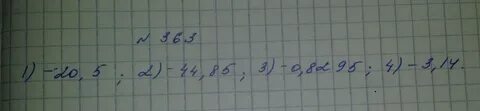 № 363
1) -20,5 ; 2) -44,85 ; 3) -0,8295 ; 4) -3,14.